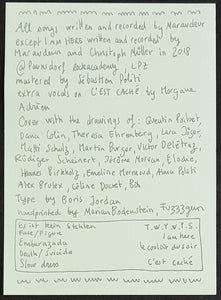 All songs written and recorded by Maraudeur
except I am HERE written and recorded by
Maraudeur and Christoph Müller in 2018
@ Paunsdorf rockacademy, LPZ
mastered by Sébastien Politi
extra vocals on C'EST CACHÉ by Morgane
Adrien
Cover with the drawings of: Quentin Poilbet,
Dana Colin, Theresa Ehrenberg, Lara Jäger,
Matti Schulz, Martin Burger, Victor Delétraz,
Rüdiger Scheinert, Jérôme Morvan, Elodie,
Hannes Birkholz, Emeline Mermoud, Anna Politi
Alex Brutus, Céline Ducret, BA
Type by Boris Jordan
handprinted by Marian Bodenstein, Fuzzgun
Es ist kein Stehlen
Face/Figure
Embarazada
Death/Suicide
Slow dress
T.W.Y.W.T.S.
I am here
le couloir du soir
C'est caché